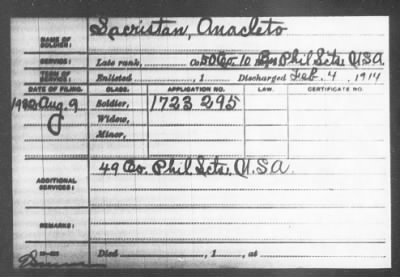 NAME OF SOLDIER: Sacristan, Anacleto
SERVICE: Late rank, Co. 50 Co. 10 Bn Phil Scts, U.S.A.
TERM OF SERVICE: Enlisted , 1 Discharged Feb. 4, 1914
DATE OF FILING. CLASS. APPLICATION NO. LAW. CERTIFICATE NO.
1932 Aug. 9 Soldier, 1723 295
Widow,
Minor,
ADDITIONAL SERVICES: 49 Co. Phil. Scts, U.S.A.
REMARKS:
Died , 1 , at